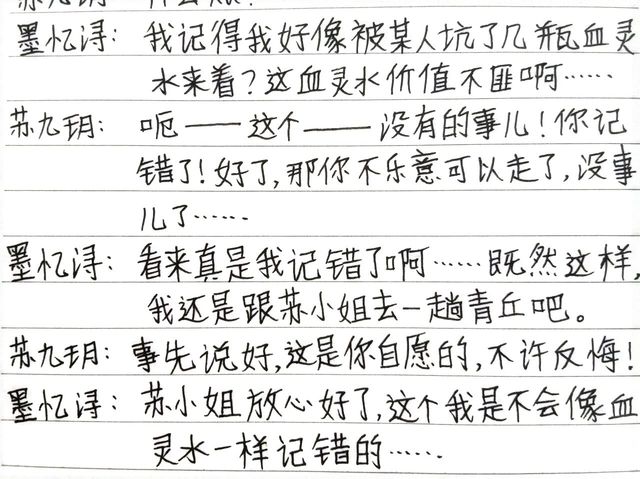 墨忆浔：我记得我好像被某人坑了几瓶血灵
水来着？这血灵水价值不匪啊……
苏九玥：呃——这个——没有的事儿！你记
错了！好了，那你不乐意可以走了，没事
儿了……
墨忆浔：看来真是我记错了啊……既然这样，
我还是跟苏小姐去一趟青丘吧。
苏九玥：事先说好，这是你自愿的，不许反悔！
墨忆浔：苏小姐放心好了，这个我是不会像血
灵水一样记错的……